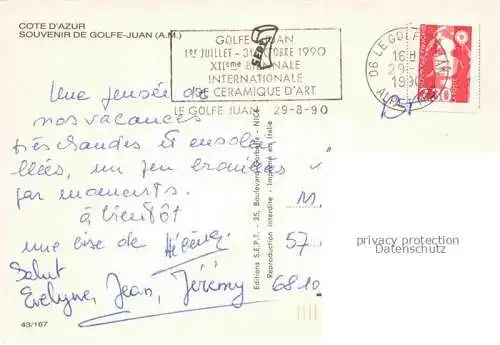 COTE D'AZUR
SOUVENIR DE GOLFE-JUAN (A.M.)
GOLFE JUAN
1er JUILLET - 31 OCTOBRE 1990
XIIeme BIENNALE
INTERNATIONALE
DE CERAMIQUE D'ART
LE GOLFE JUAN 29-8-90
06 LE GOLFE JUAN
16H
29-
1990
ALPES
Une pensée de
nos vacances
très chaudes et ensoleil
lées, un peu
par moments.
à bientôt
une bise de Hélène
Salut
Evelyne, Jean, Jérémy
M.
57
6810
Editions S.E.P.T. - 35, Boulevard - NICE
Reproduction interdite - Imprimé en Italie
privacy protection
Datenschutz
43/167